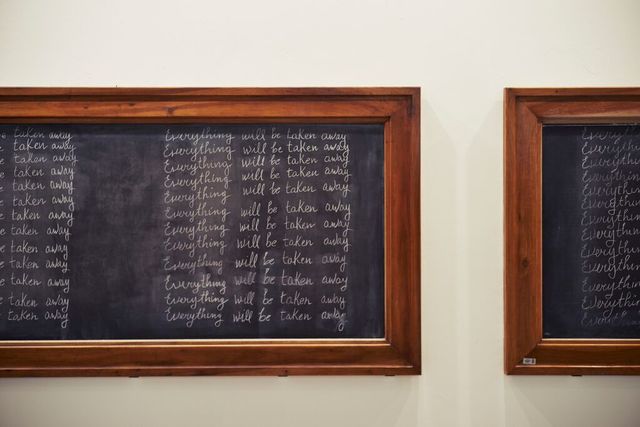 taken away
taken away
taken away
taken away
taken away
taken away
taken away
taken away
taken away
taken away
taken away
taken away
taken away
Everything will be taken away
Everything will be taken away
Everything will be taken away
Everything will be taken away
Everything will be taken away
Everything will be taken away
Everything will be taken away
Everything will be taken away
Everything will be taken away
Everything will be taken away
Everything will be taken away
Everything will be taken away
Everything
Everything
Everything
Everything
Everything
Everything
Everything
Everything
Everything
Everything
Everything
Everything